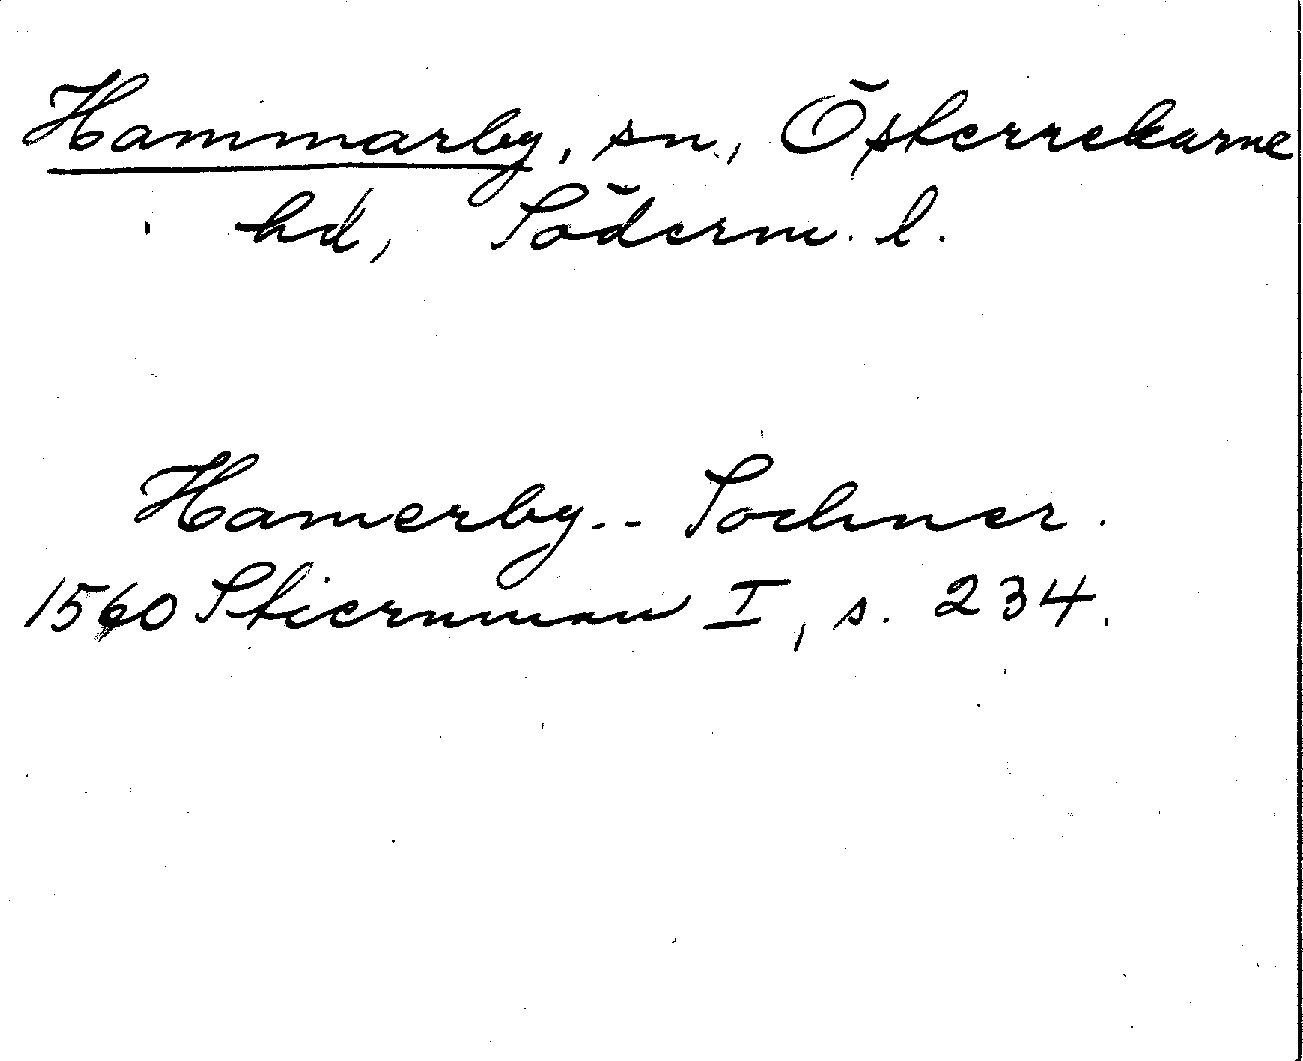 Hammarby, sn, Österrekarne
hd, Söderm. l.
Hamerby-- Sochner.
1560 Stiernman I, s. 234.